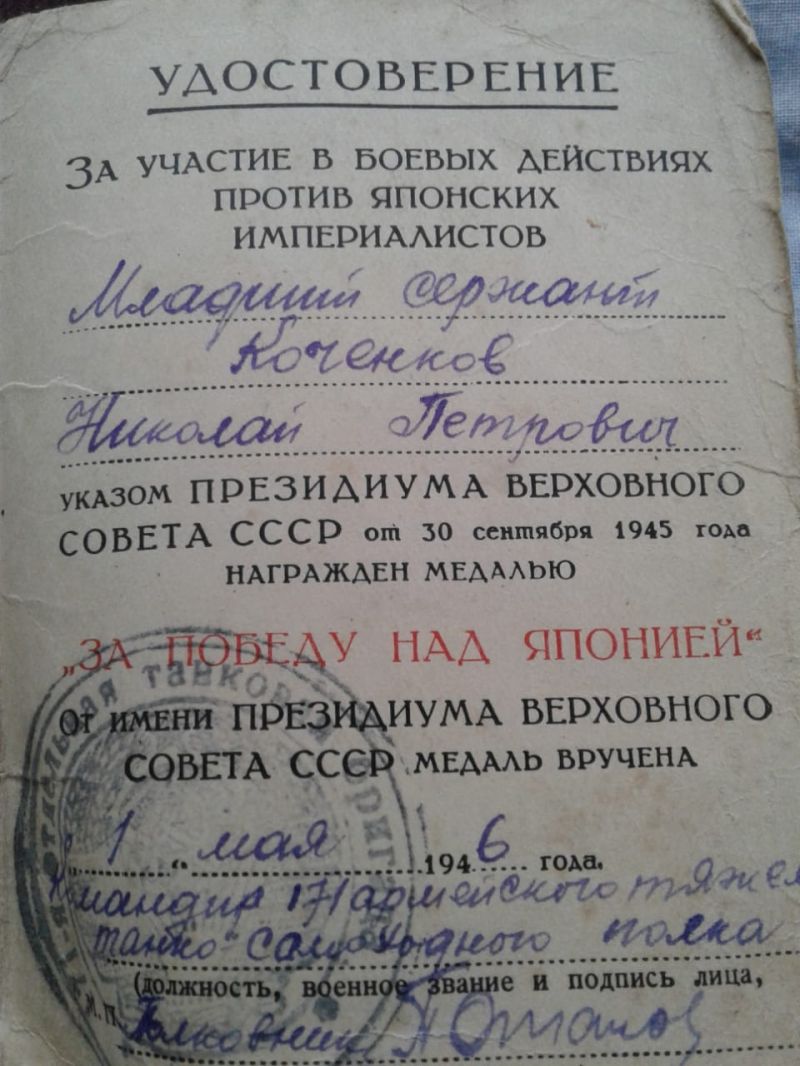 УДОСТОВЕРЕНИЕ
ЗА УЧАСТИЕ В БОЕВЫХ ДЕЙСТВИЯХ
ПРОТИВ ЯПОНСКИХ
ИМПЕРИАЛИСТОВ
Младший сержант
Коченков
Николай Петрович
УКАЗОМ ПРЕЗИДИУМА ВЕРХОВНОГО
СОВЕТА СССР от 30 сентября 1945 года
НАГРАЖДЕН МЕДАЛЬЮ
„ЗА ПОБЕДУ НАД ЯПОНИЕЙ“
От ИМЕНИ ПРЕЗИДИУМА ВЕРХОВНОГО
СОВЕТА СССР МЕДАЛЬ ВРУЧЕНА
„1“ мая 1946 года.
Командир 171 армейского тяжел
танко-самоходного полка
(должность, военное звание и подпись лица,
М.П. Полковник